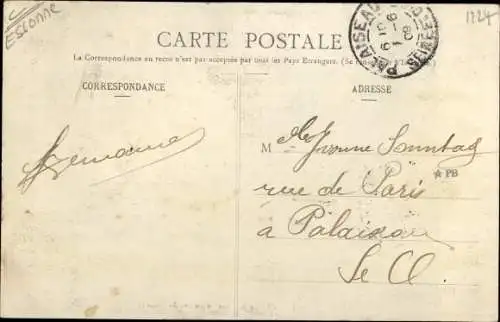 Essonne
1224
CARTE POSTALE
PALAISEAU
La Correspondance au recto n'est pas acceptée par tous les Pays Etrangers. (Se
CORRESPONDANCE
ADRESSE
Germaine
M elle Yvonne Sonntag
rue de Paris
★ PB
à Palaiseau
S. et O.